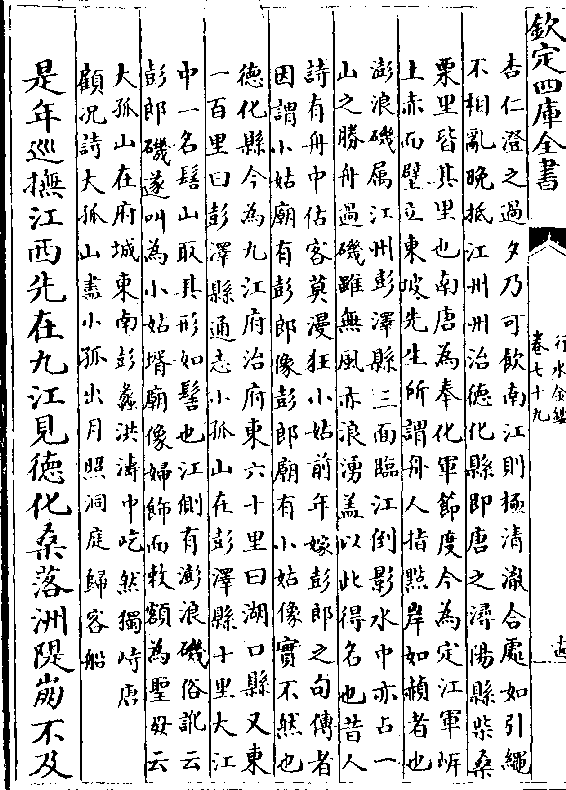 欽定四庫全書
行水金鑑
卷七十九
杏仁澄之過夕乃可飲南江則極清澈合處如引繩
不相亂晚抵江州州治德化縣即唐之潯陽縣柴桑
栗里皆其里也南唐為奉化軍節度今為定江軍岍
土赤而壁立東坡先生所謂舟人指㸃岸如赬者也
澎浪磯属江州彭澤縣三面臨江倒影水中亦占一
山之勝舟過磯雖無風亦浪湧盖以此得名也昔人
詩有舟中估客莫漫狂小姑前年嫁彭郎之句傳者
因謂小姑廟有彭郎像彭郎廟有小姑像實不然也
德化縣今為九江府治府東六十里曰湖口縣又東
一百里曰彭澤縣通志小孤山在彭澤縣十里大江
中一名髻山取其形如髻也江側有澎浪磯俗訛云
彭郎磯遂叫為小姑壻廟像婦飾而敕額為聖母云
大孤山在府城東南彭蠡洪濤中屹然獨峙唐
顧况詩大孤山盡小孤出月照洞庭歸客船
是年巡撫江西先在九江見德化桑落洲隄崩不及